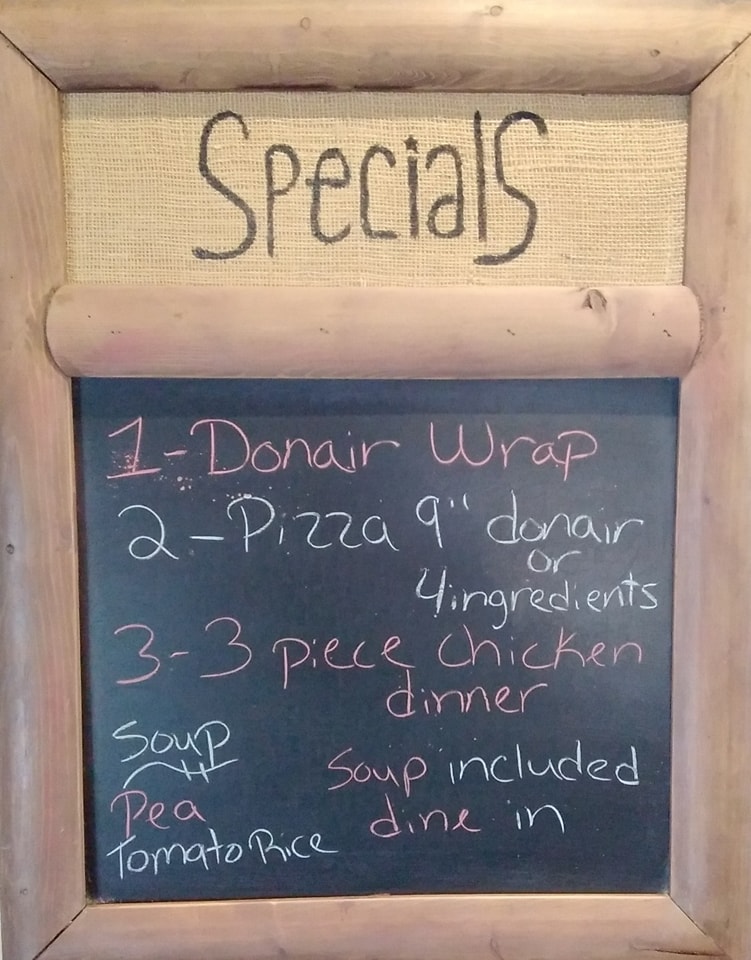 Specials
1-Donair Wrap
2-Pizza 9" donair
or
4ingredients
3-3 piece chicken
dinner
Soup
Pea
Tomato Rice
Soup included
dine in